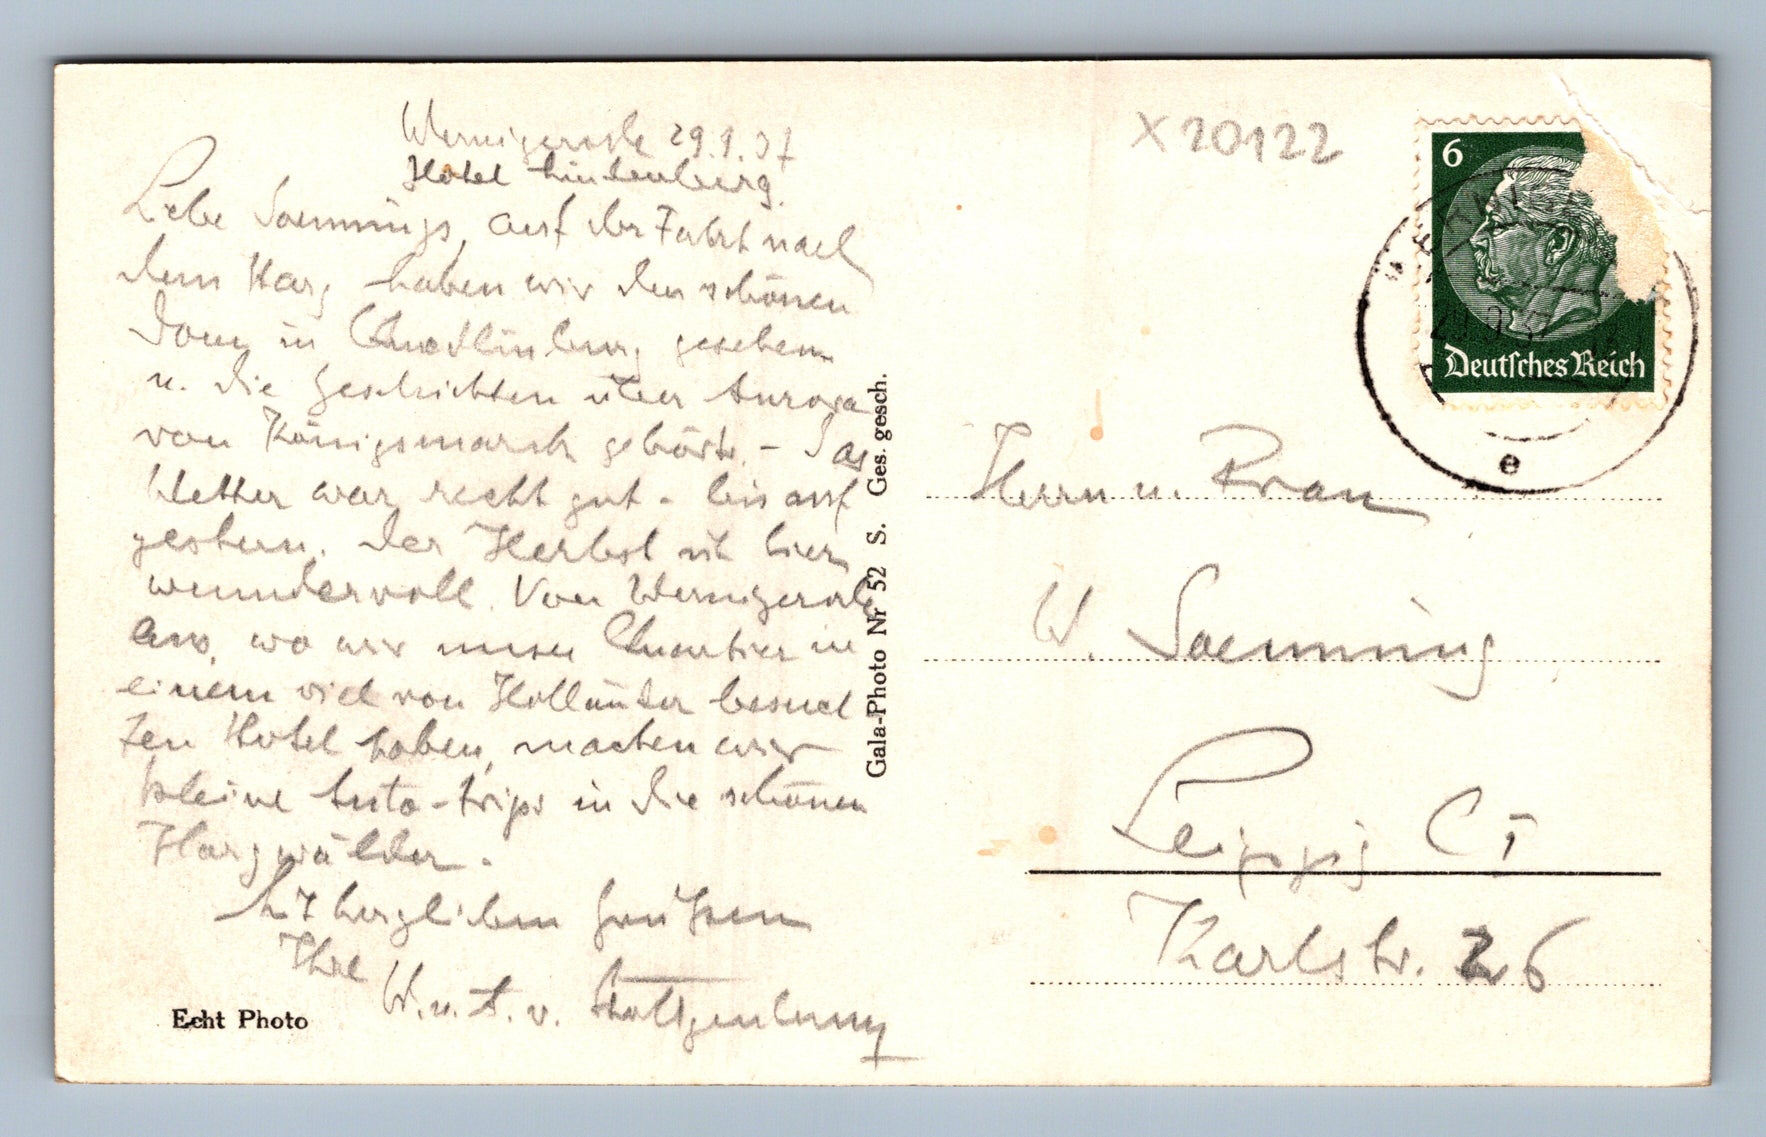 Wernigerode 29.9.37
Hotel Lindenberg.
Liebe Soennings, auf der Fahrt nach
dem Harz haben wir den schönen
Dom in Quedlinburg gesehen
u. die Geschichten über Aurora
von Königsmarck gehört. – Das
Wetter war recht gut – bis auf
gestern. Der Herbst ist hier
wundervoll. Von Wernigerode
aus, wo wir unser Quartier in
einem viel von Holländer besuch
ten Hotel haben, machen wir
kleine Auto-trips in die schönen
Harzwälder.
Mit herzlichen Grüssen
Ihre
W. u. A. v.
Echt Photo
Gala-Photo Nr 52 S. Ges. gesch.
X 20122
6
Deutsches Reich
e
Herrn u. Frau
W. Soenning
Leipzig C 1
Karlstr. 26